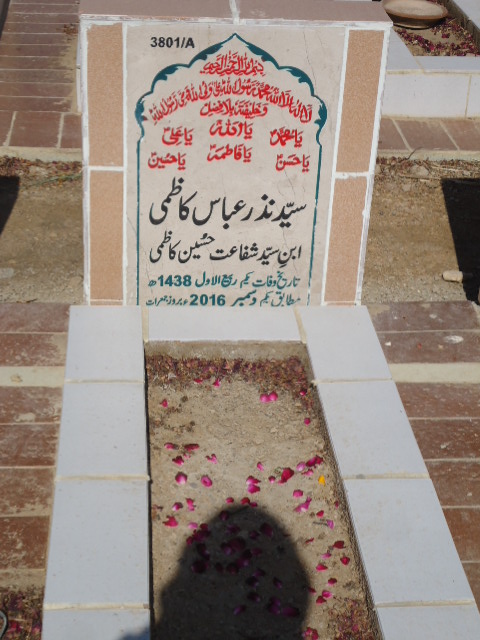 3801/A
بسم اللہ الرحمن الرحیم
لا الہ الا اللہ محمد رسول اللہ علی ولی اللہ وصی رسول اللہ
و خلیفتہ بلا فصل
یا اللہ
یا محمدؐ یا علیؑ
یا فاطمہؑ
یا حسنؑ یا حسینؑ
سیّد نذر عباس کاظمی
ابنِ سیّد شفاعت حُسین کاظمی
تاریخ وفات یکم ربیع الاول 1438ھ
مطابق یکم دسمبر 2016ء بروز جمعرات